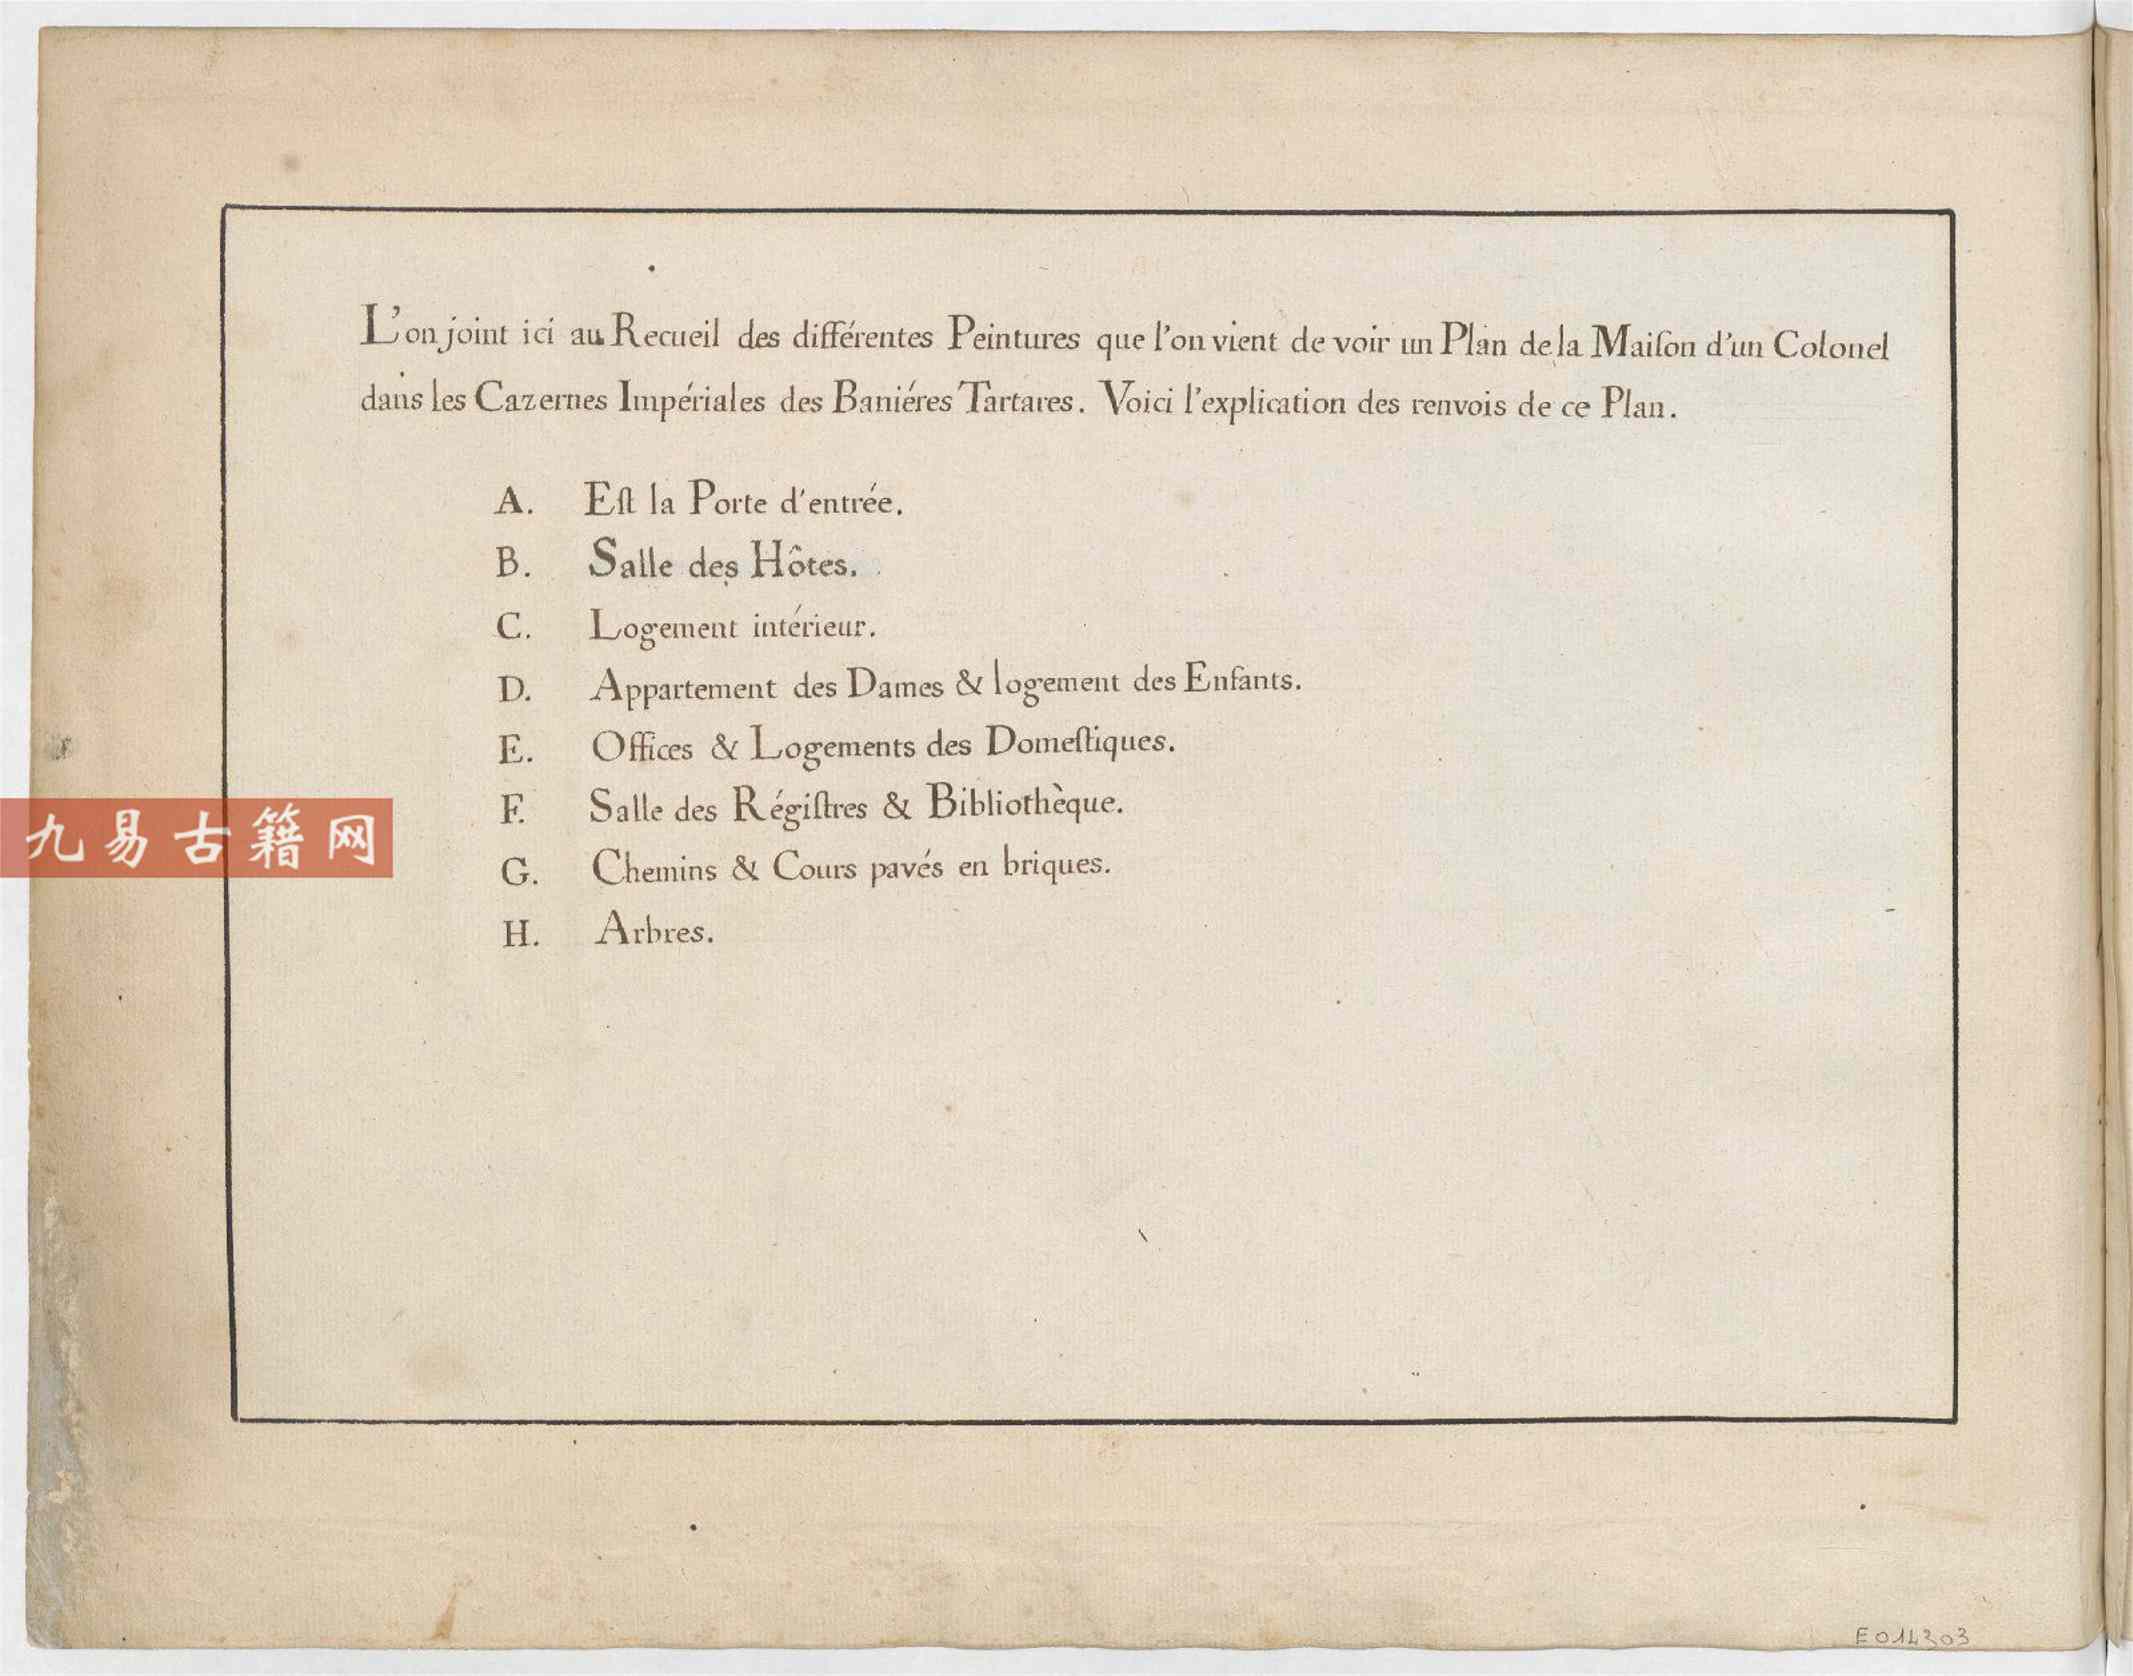 L'on joint ici au Recueil des différentes Peintures que l'on vient de voir un Plan de la Maiſon d'un Colonel
dans les Cazernes Impériales des Baniéres Tartares. Voici l'explication des renvois de ce Plan.
A. Eſt la Porte d'entrée.
B. Salle des Hôtes.
C. Logement intérieur.
D. Appartement des Dames & logement des Enfants.
E. Offices & Logements des Domeſtiques.
F. Salle des Régiſtres & Bibliothèque.
九易古籍网
G. Chemins & Cours pavés en briques.
H. Arbres.
E014303